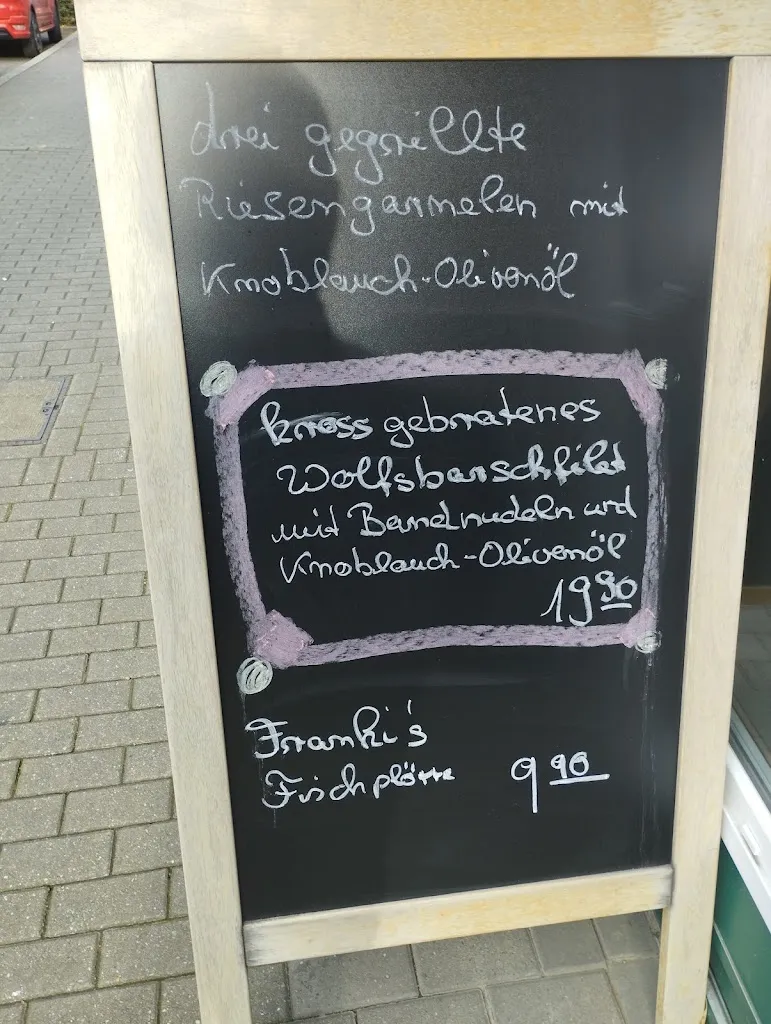 drei gegrillte
Riesengarnelen mit
Knoblauch-Olivenöl
kross gebratenes
Wolfsbarschfilet
mit Bandnudeln und
Knoblauch-Olivenöl
19 90
Franki's
Fischplötte 9 90